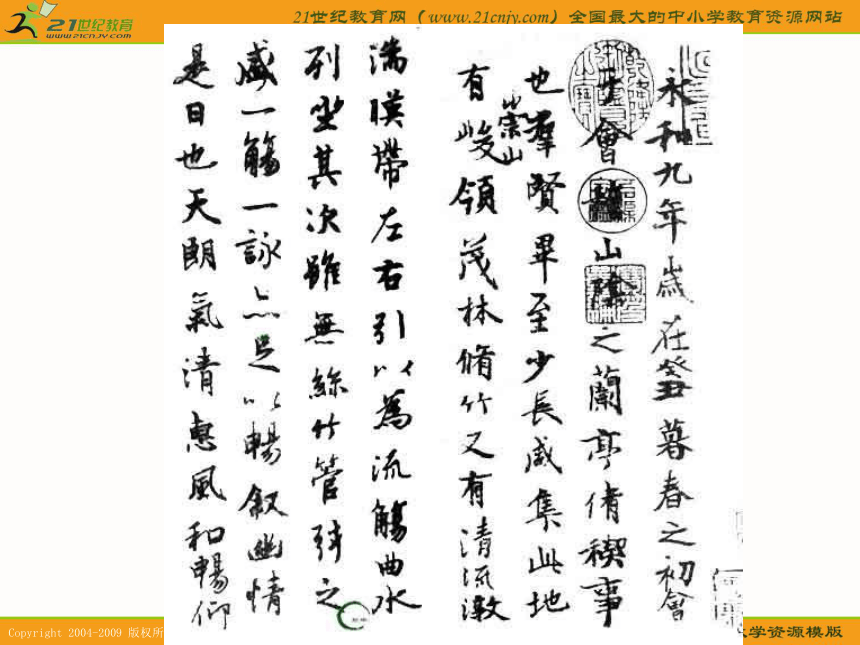 21世纪教育
www.21cnjy.com
21世纪教育网（www.21cnjy.com）全国最大的中小学教育资源网站
永和九年歲在癸丑暮春之初會
于會稽山陰之蘭亭脩稧事
也羣賢畢至少長咸集此地
有崇山峻領茂林脩竹又有清流激
湍暎帶左右引以為流觴曲水
列坐其次雖無絲竹管弦之
盛一觴一詠亦足以暢叙幽情
是日也天朗氣清惠風和暢仰
Copyright 2004-2009 版权所
学资源模版